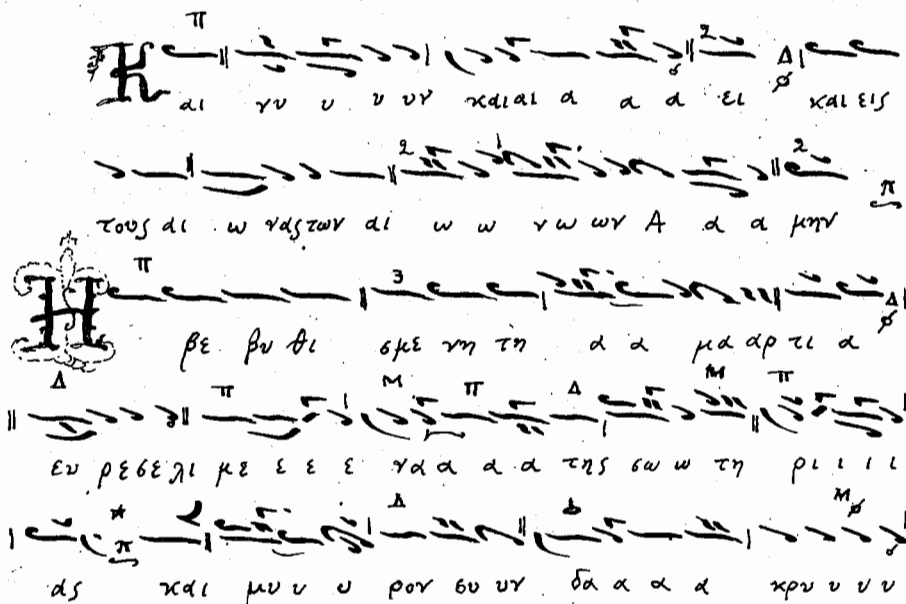 Και νυ υ υ υν και αι α α α ει και εις
τους αι ω νας των αι ω ω νω ων Α α α μην
Η βε βυ θι σμε νη τη α α μα αρ τι α
ευ ρε σε λι με ε ε ε να α α α της σω ω τη ρι ι ι ι
ας και μυ υ υ ρον συ υν δα α α α κρυ υ υ υ